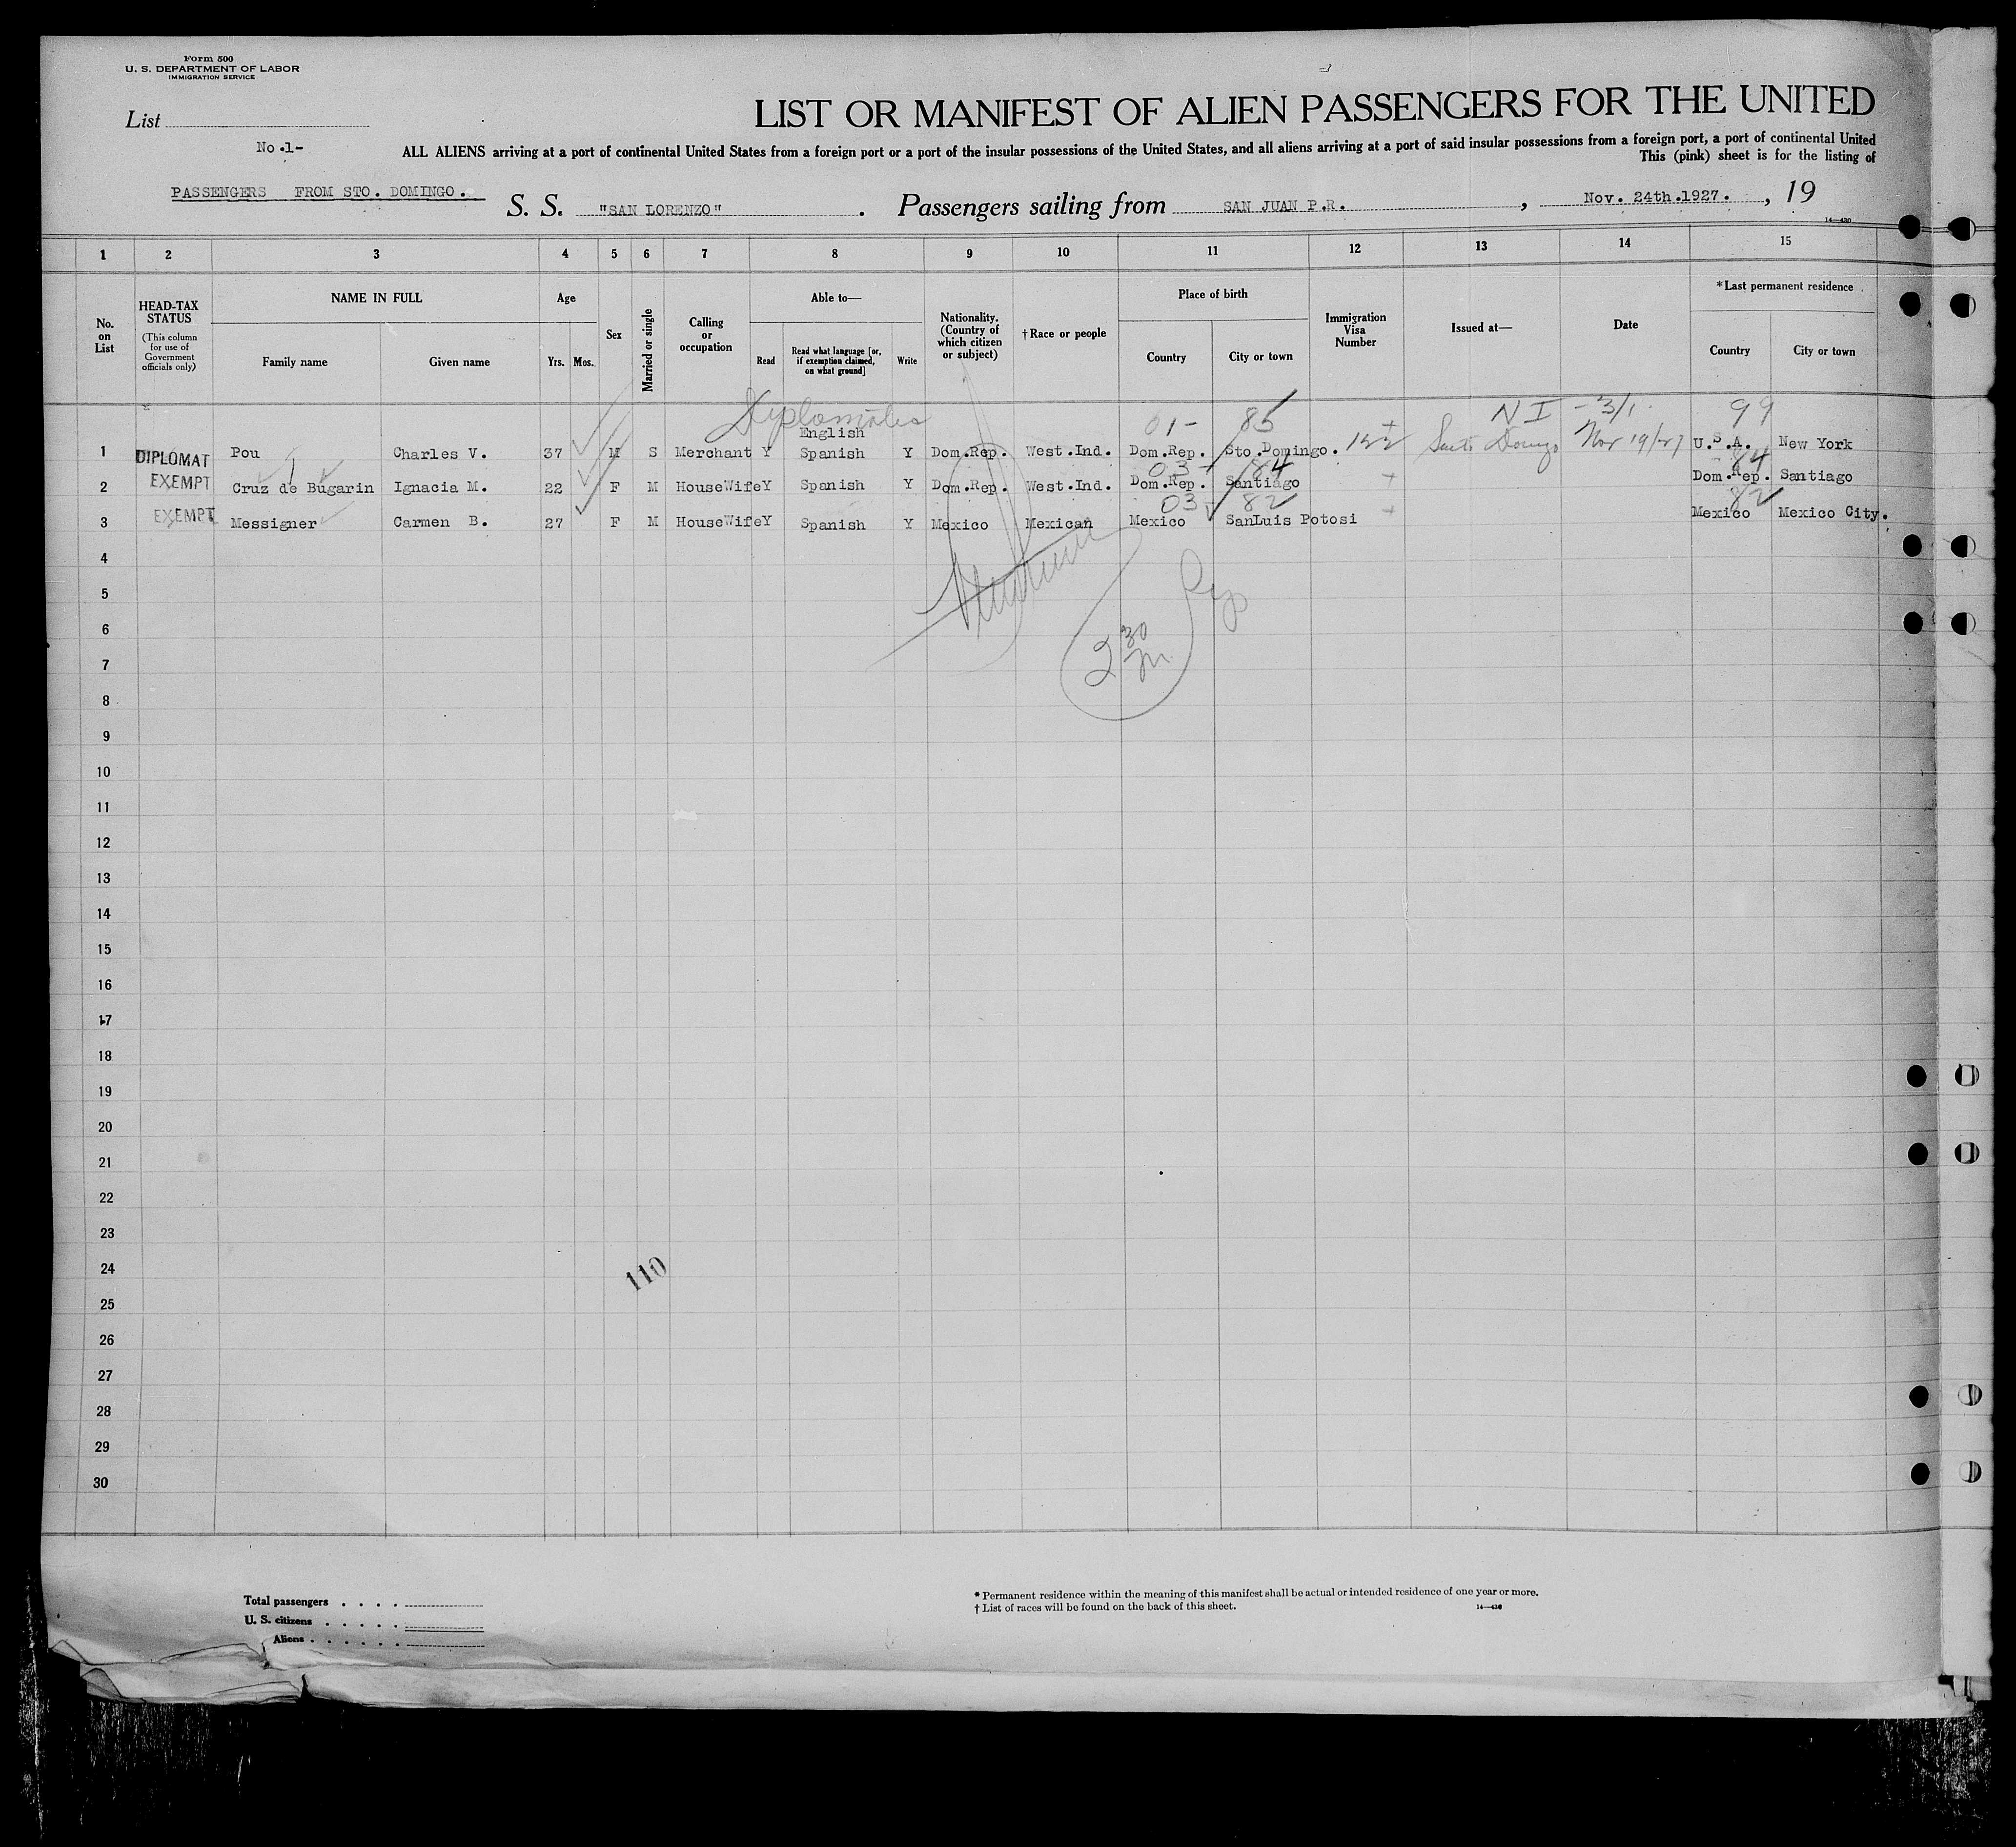 Form 500
U. S. DEPARTMENT OF LABOR
IMMIGRATION SERVICE
List
No.1-
LIST OR MANIFEST OF ALIEN PASSENGERS FOR THE UNITED
ALL ALIENS arriving at a port of continental United States from a foreign port or a port of the insular possessions of the United States, and all aliens arriving at a port of said insular possessions from a foreign port, a port of continental United
This (pink) sheet is for the listing of
PASSENGERS FROM STO. DOMINGO.
S. S. "SAN LORENZO" . Passengers sailing from SAN JUAN P.R. , Nov. 24th.1927. , 19
14—430
1 2 3 4 5 6 7 8 9 10 11 12 13 14 15
No. on List
HEAD-TAX STATUS
(This column for use of Government officials only)
NAME IN FULL
Family name Given name
Age
Yrs. Mos.
Sex
Married or single
Calling or occupation
Able to—
Read
Read what language [or, if exemption claimed, on what ground]
Write
Nationality. (Country of which citizen or subject)
† Race or people
Place of birth
Country City or town
Immigration Visa Number
Issued at—
Date
* Last permanent residence
Country City or town
Diplomatic 01- 85 N I - 3/1. 99
English
1 DIPLOMAT Pou Charles V. 37 M S Merchant Y Spanish Y Dom.Rep. West.Ind. Dom.Rep. Sto.Domingo. 122 Santo Domingo Nov 19/27 U.S.A. New York
03- 84 84
2 EXEMPT Cruz de Bugarin Ignacia M. 22 F M HouseWife Y Spanish Y Dom.Rep. West.Ind. Dom.Rep. Santiago Dom.Rep. Santiago
03 82 82
3 EXEMPT Messigner Carmen B. 27 F M HouseWife Y Spanish Y Mexico Mexican Mexico SanLuis Potosi Mexico Mexico City.
4
5
6
2 30 m
7
8
9
10
11
12
13
14
15
16
17
18
19
20
21
22
23
24
110
25
26
27
28
29
30
Total passengers . . . .
U. S. citizens . . . . .
Aliens . . . . . .
* Permanent residence within the meaning of this manifest shall be actual or intended residence of one year or more.
† List of races will be found on the back of this sheet.
14—430